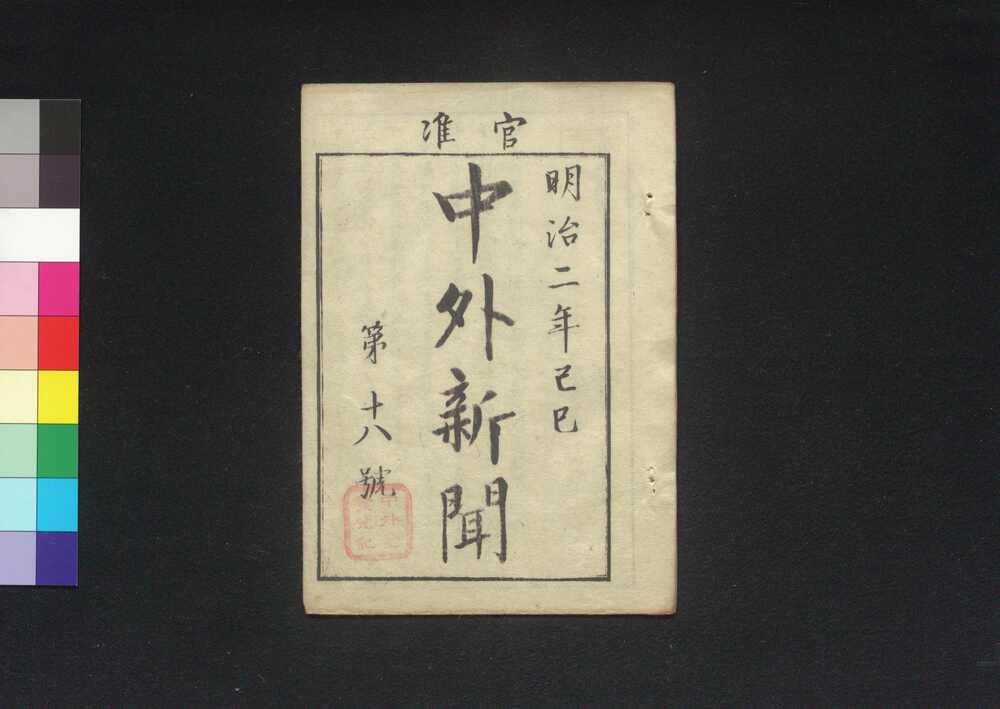 官准
明治二年己巳
中外新聞
第十八號
中外